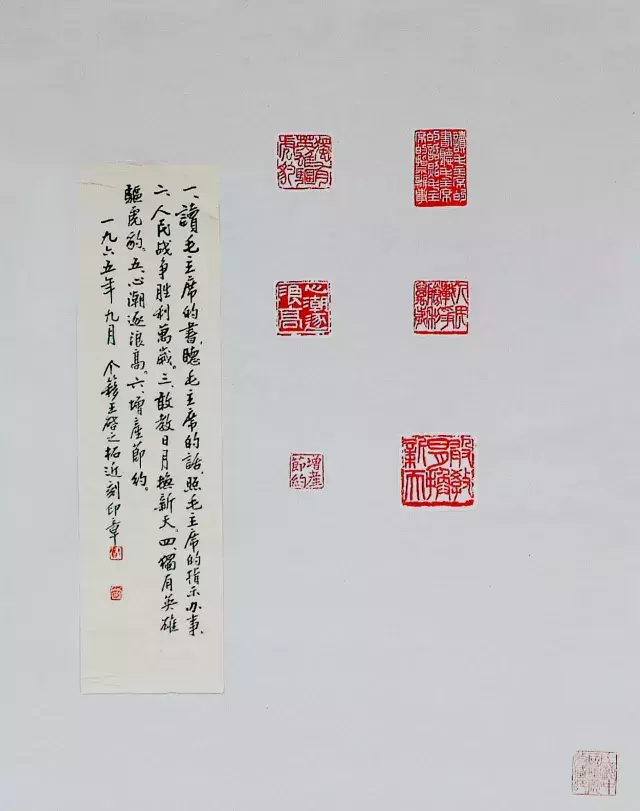 讀毛主席的
書聽毛主席
的話照毛主
席的指示辦事
人民
戰爭
勝利
萬歲
敢教
日月換
新天
獨有
英雄驅
虎豹
心潮逐
浪高
增產
節約
一、讀毛主席的書、聽毛主席的話、照毛主席的指示办事、
二、人民战争胜利萬歲。三、敢教日月换新天。四、獨有英雄
驅虎豹。五、心潮逐浪高。六、增產節約。
一九六五年九月 个簃王啓之拓近刻印章